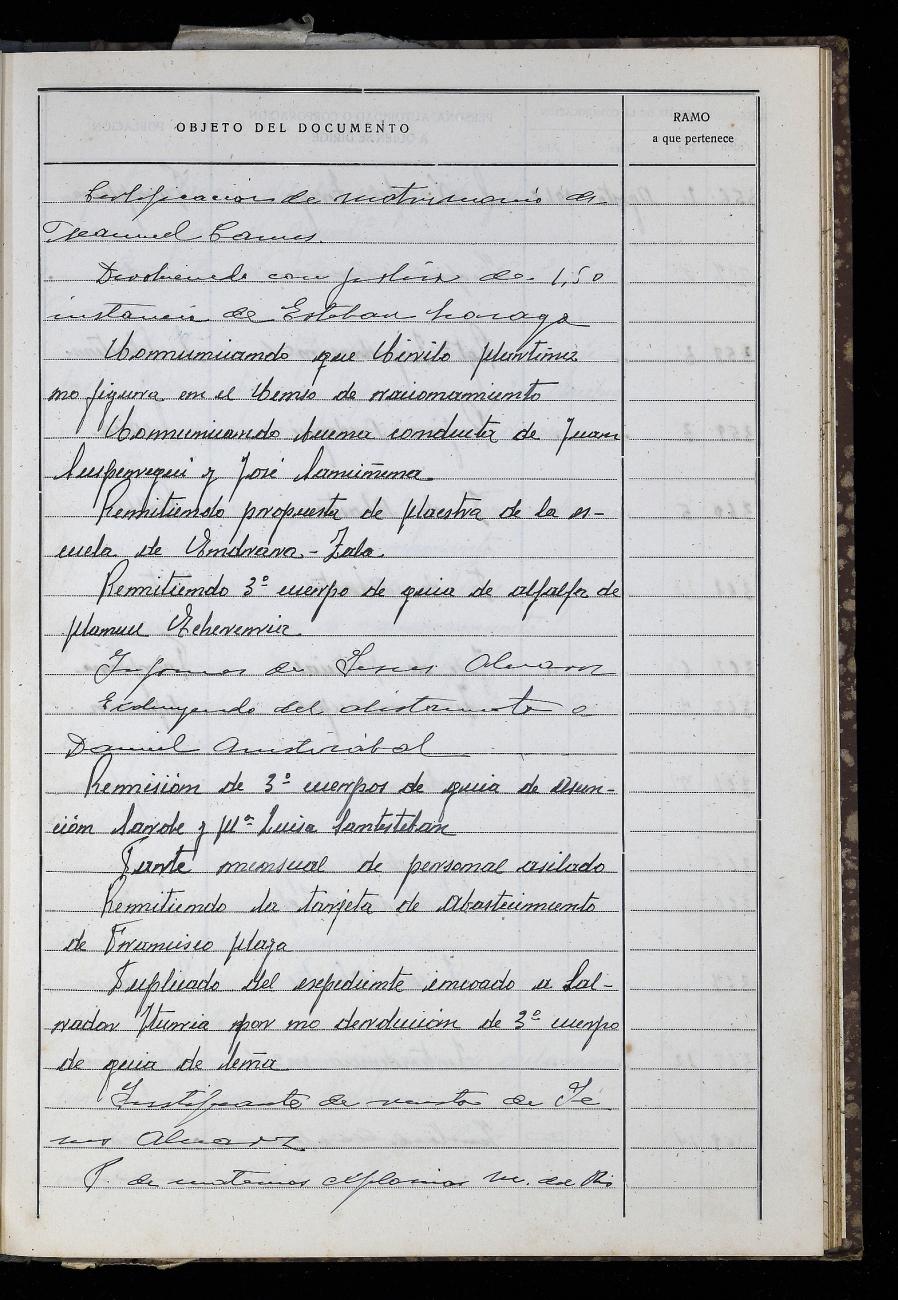 OBJETO DEL DOCUMENTO
RAMO
a que pertenece
Certificacion de matrimonio de
Manuel
Devolviendo con poliza de 1,50
instancia de Esteban
Comunicando que Cirilo Martinez
no figura en el Censo de racionamiento
Comunicando buena conducta de Juan
y José
Remitiendo propuesta de Maestra de la es-
cuela de Andraca-Zala
Remitiendo 3º cuerpo de guia de alfalfa de
Manuel Echeverria
Informes de Jesus Alvarez
Excluyendo del a
Daniel Aristizabal
Remisión de 3º cuerpos de guia de Asun-
ción y Mª Luisa Santesteban
Parte mensual de personal asilado
Remitiendo la tarjeta de Abastecimiento
de Francisco Plaza
Duplicado del expediente incoado a Sal-
vador Iturria por no devolución de 3º cuerpo
de guia de leña
Justificante de de Je
sus Alvarez
P. de materias M. del Rio